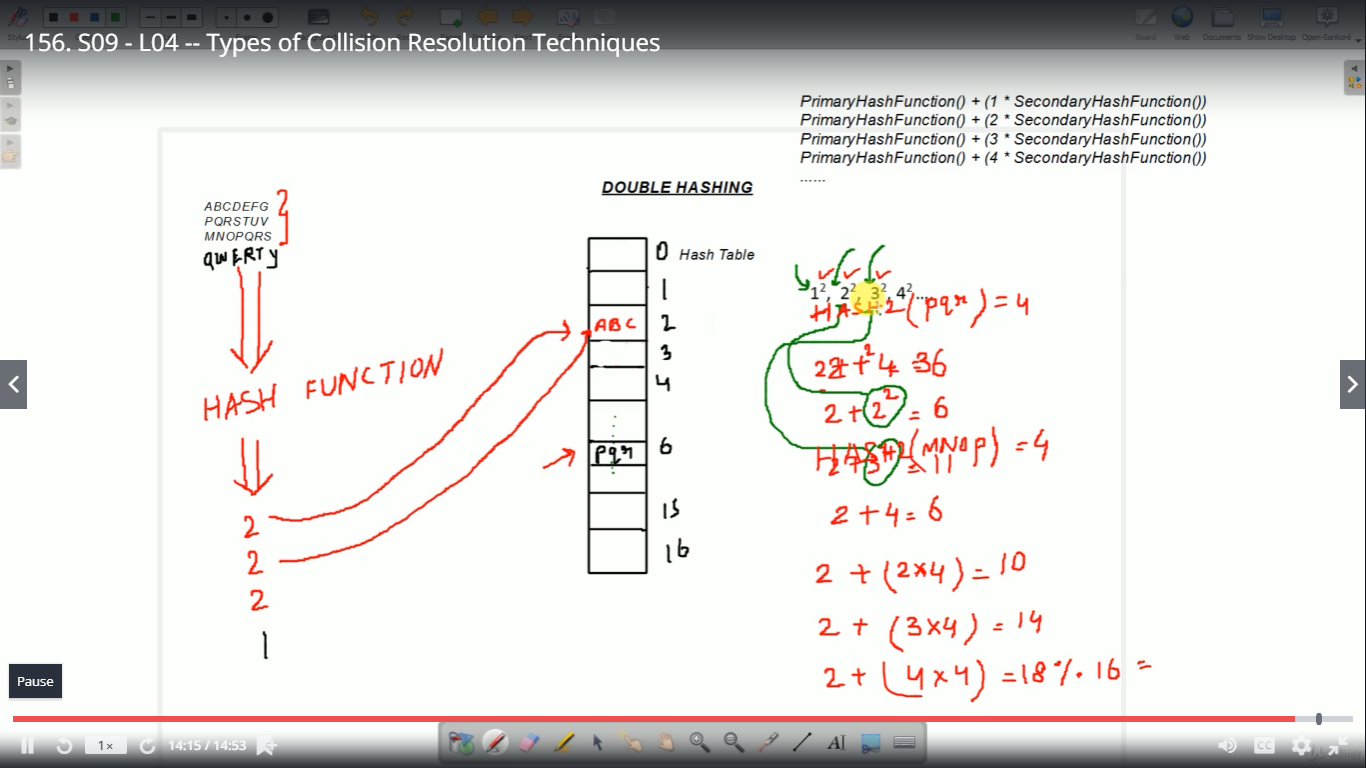 Board
Web
Documents
Show Desktop
Open-Sankoré
156. S09 - L04 -- Types of Collision Resolution Techniques
PrimaryHashFunction() + (1 * SecondaryHashFunction())
PrimaryHashFunction() + (2 * SecondaryHashFunction())
PrimaryHashFunction() + (3 * SecondaryHashFunction())
PrimaryHashFunction() + (4 * SecondaryHashFunction())
......
DOUBLE HASHING
ABCDEFG
PQRSTUV
MNOPQRS
QWERTY
HASH FUNCTION
2
2
2
1
0 Hash Table
1
ABC 2
3
4
pqr 6
15
16
1², 2², 3², 4²...
HASH2(pqr) = 4
2 + 2² = 6
HASH2(MNOP) = 4
2 + 3² = 11
2 + 4 = 6
2 + (2x4) = 10
2 + (3x4) = 14
2 + (4x4) = 18 % 16 =
Pause
1×
14:15 / 14:53
CC